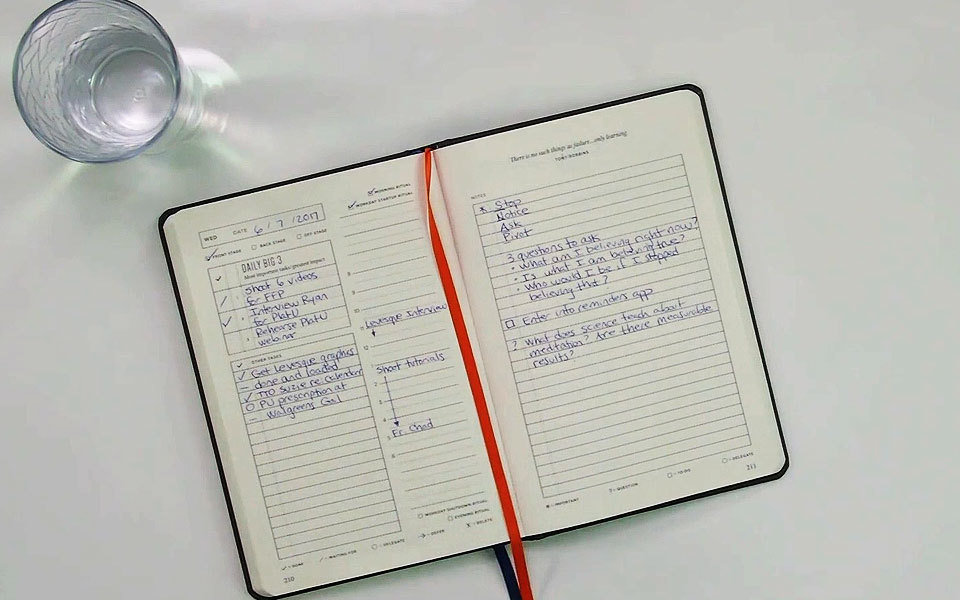 WED DATE 6/7/2017
✓ FRONT STAGE ☐ BACK STAGE ☐ OFF STAGE
✓ DAILY BIG 3
Most important tasks/greatest impact
Shoot 6 videos
for FFP
✓ Interview Ryan
for PlatU
✓ Rehearse PlatU
webinar
✓ OTHER TASKS
✓ Get Levesque graphics
– done and loaded
✓ TTO Suzie re: calendar
O PU prescription at
– Walgreens Gal
☑ MORNING RITUAL
✓ WORKDAY STARTUP RITUAL
8
9
10
11 Levesque Interview
12
Shoot tutorials
2
3
4
5 Fr. Chad
6
☐ WORKDAY SHUTDOWN RITUAL
☐ EVENING RITUAL
✓ = DONE / = WAITING FOR ○ = DELEGATE → = DEFER X = DELETE
210
There is no such things as failure...only learning.
TONY ROBBINS
NOTES
* Stop
Notice
Ask
Pivot
3 questions to ask
• What am I believing right now?
• Is what I am believing true?
• Who would I be if I stopped
believing that?
☐ Enter into reminders app
? What does science teach about
meditation? Are there measurable
results?
* = IMPORTANT ? = QUESTION ☐ = TO-DO ○ = DELEGATE
211